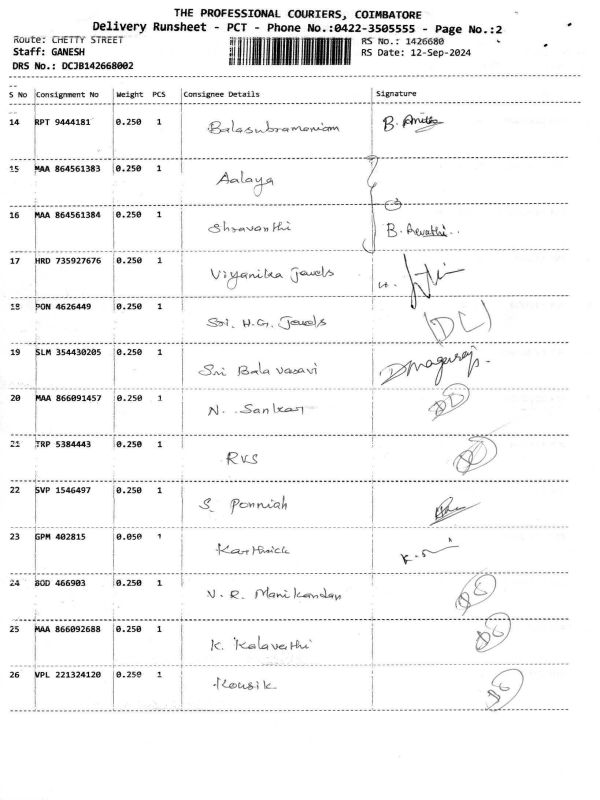 THE PROFESSIONAL COURIERS, COIMBATORE
Delivery Runsheet - PCT - Phone No.:0422-3505555 - Page No.:2
Route: CHETTY STREET RS No.: 1426680
Staff: GANESH RS Date: 12-Sep-2024
DRS No.: DCJB142668002
S No Consignment No Weight PCS Consignee Details Signature
14 RPT 9444181 0.250 1 Balasubramaniam B.
15 MAA 864561383 0.250 1 Aalaya
16 MAA 864561384 0.250 1 Shravanthi B. Revathi..
17 HRD 735927676 0.250 1 Viyanika Jewels
18 PON 4626449 0.250 1 Sri. H.G. Jewels (DL)
19 SLM 354430205 0.250 1 Sri Bala vasavi
20 MAA 866091457 0.250 1 N. Sankar
21 TRP 5384443 0.250 1 RVS
22 SVP 1546497 0.250 1 S. Ponniah
23 GPM 402815 0.050 1 Karthick K.
24 BOD 466903 0.250 1 V. R. Manikandan
25 MAA 866092688 0.250 1 K. Kalavathi
26 VPL 221324120 0.250 1 Kousik